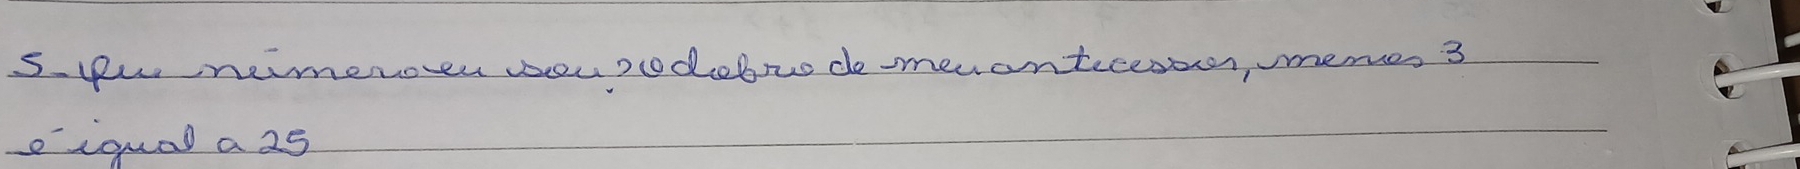 5- Que número eu sou? o dobro de meu antecessor, menos 3
é igual a 25